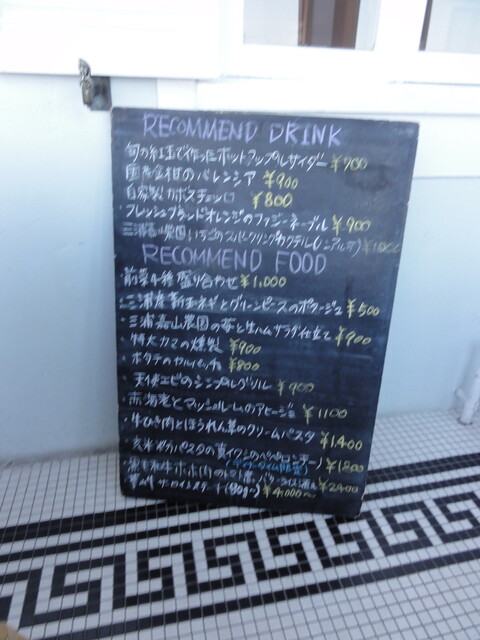 RECOMMEND DRINK
旬の紅玉で作ったホットアップルサイダー ¥700
国産金柑のバレンシア ¥900
自家製カボスチェッロ ¥800
・フレッシュブラッドオレンジのファジーネーブル ¥900
三浦嘉山農園いちごのスパークリングカクテル(ノンアル可) ¥1,000
RECOMMEND FOOD
・前菜4種盛り合わせ ¥1,000
・三浦産新玉ネギとグリーンピースのポタージュ ¥500
・三浦嘉山農園の苺と生ハムサラダ仕立て ¥900
・特大カマの燻製 ¥900
・ホタテのカルパッチョ ¥800
・天使エビのシンプルグリル ¥900
・赤海老とマッシュルームのアヒージョ ¥1100
・牛ひき肉とほうれん草のクリームパスタ ¥1,400
・玄米 パスタの真イワシのペペロンチーノ ¥1,800
・黒毛和牛ホホ肉のトロトロ煮 バターライス添え ¥2400
サーロインステーキ(180g〜) ¥4,000〜